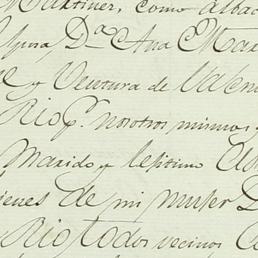 Martinez, como alba
Dª Ana Mar
y Ventura de
Rio pr. nosotros mismos y
Marido y lexitimo
ienes de mi muger D
Rio todos vecinos